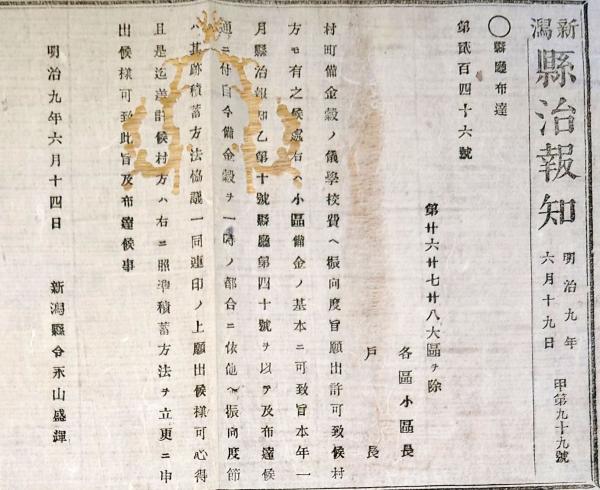 新潟
縣治報知
明治九年
六月十九日
甲第九十九號
〇縣廳布達
第貳百四十六號
第廿六廿七廿八大區ヲ除
各區小區長
戸長
村町備金穀ノ儀學校費ヘ振向度旨願出許可致候村
方モ有之候處右ハ小區備金ノ基本ニ可致旨本年一
月縣治報知乙第十號縣廳第四十號ヲ以テ及布達候
ニ付自今備金穀ヲ一時ノ都合ニ依他ヘ振向度節
ハ其跡積蓄方法協議一同連印ノ上願出候様可心得
且是迄濟許候村方ハ右ニ照準積蓄方法ヲ立更ニ申
出候樣可致此旨及布達候事
明治九年六月十四日
新潟縣令永山盛輝